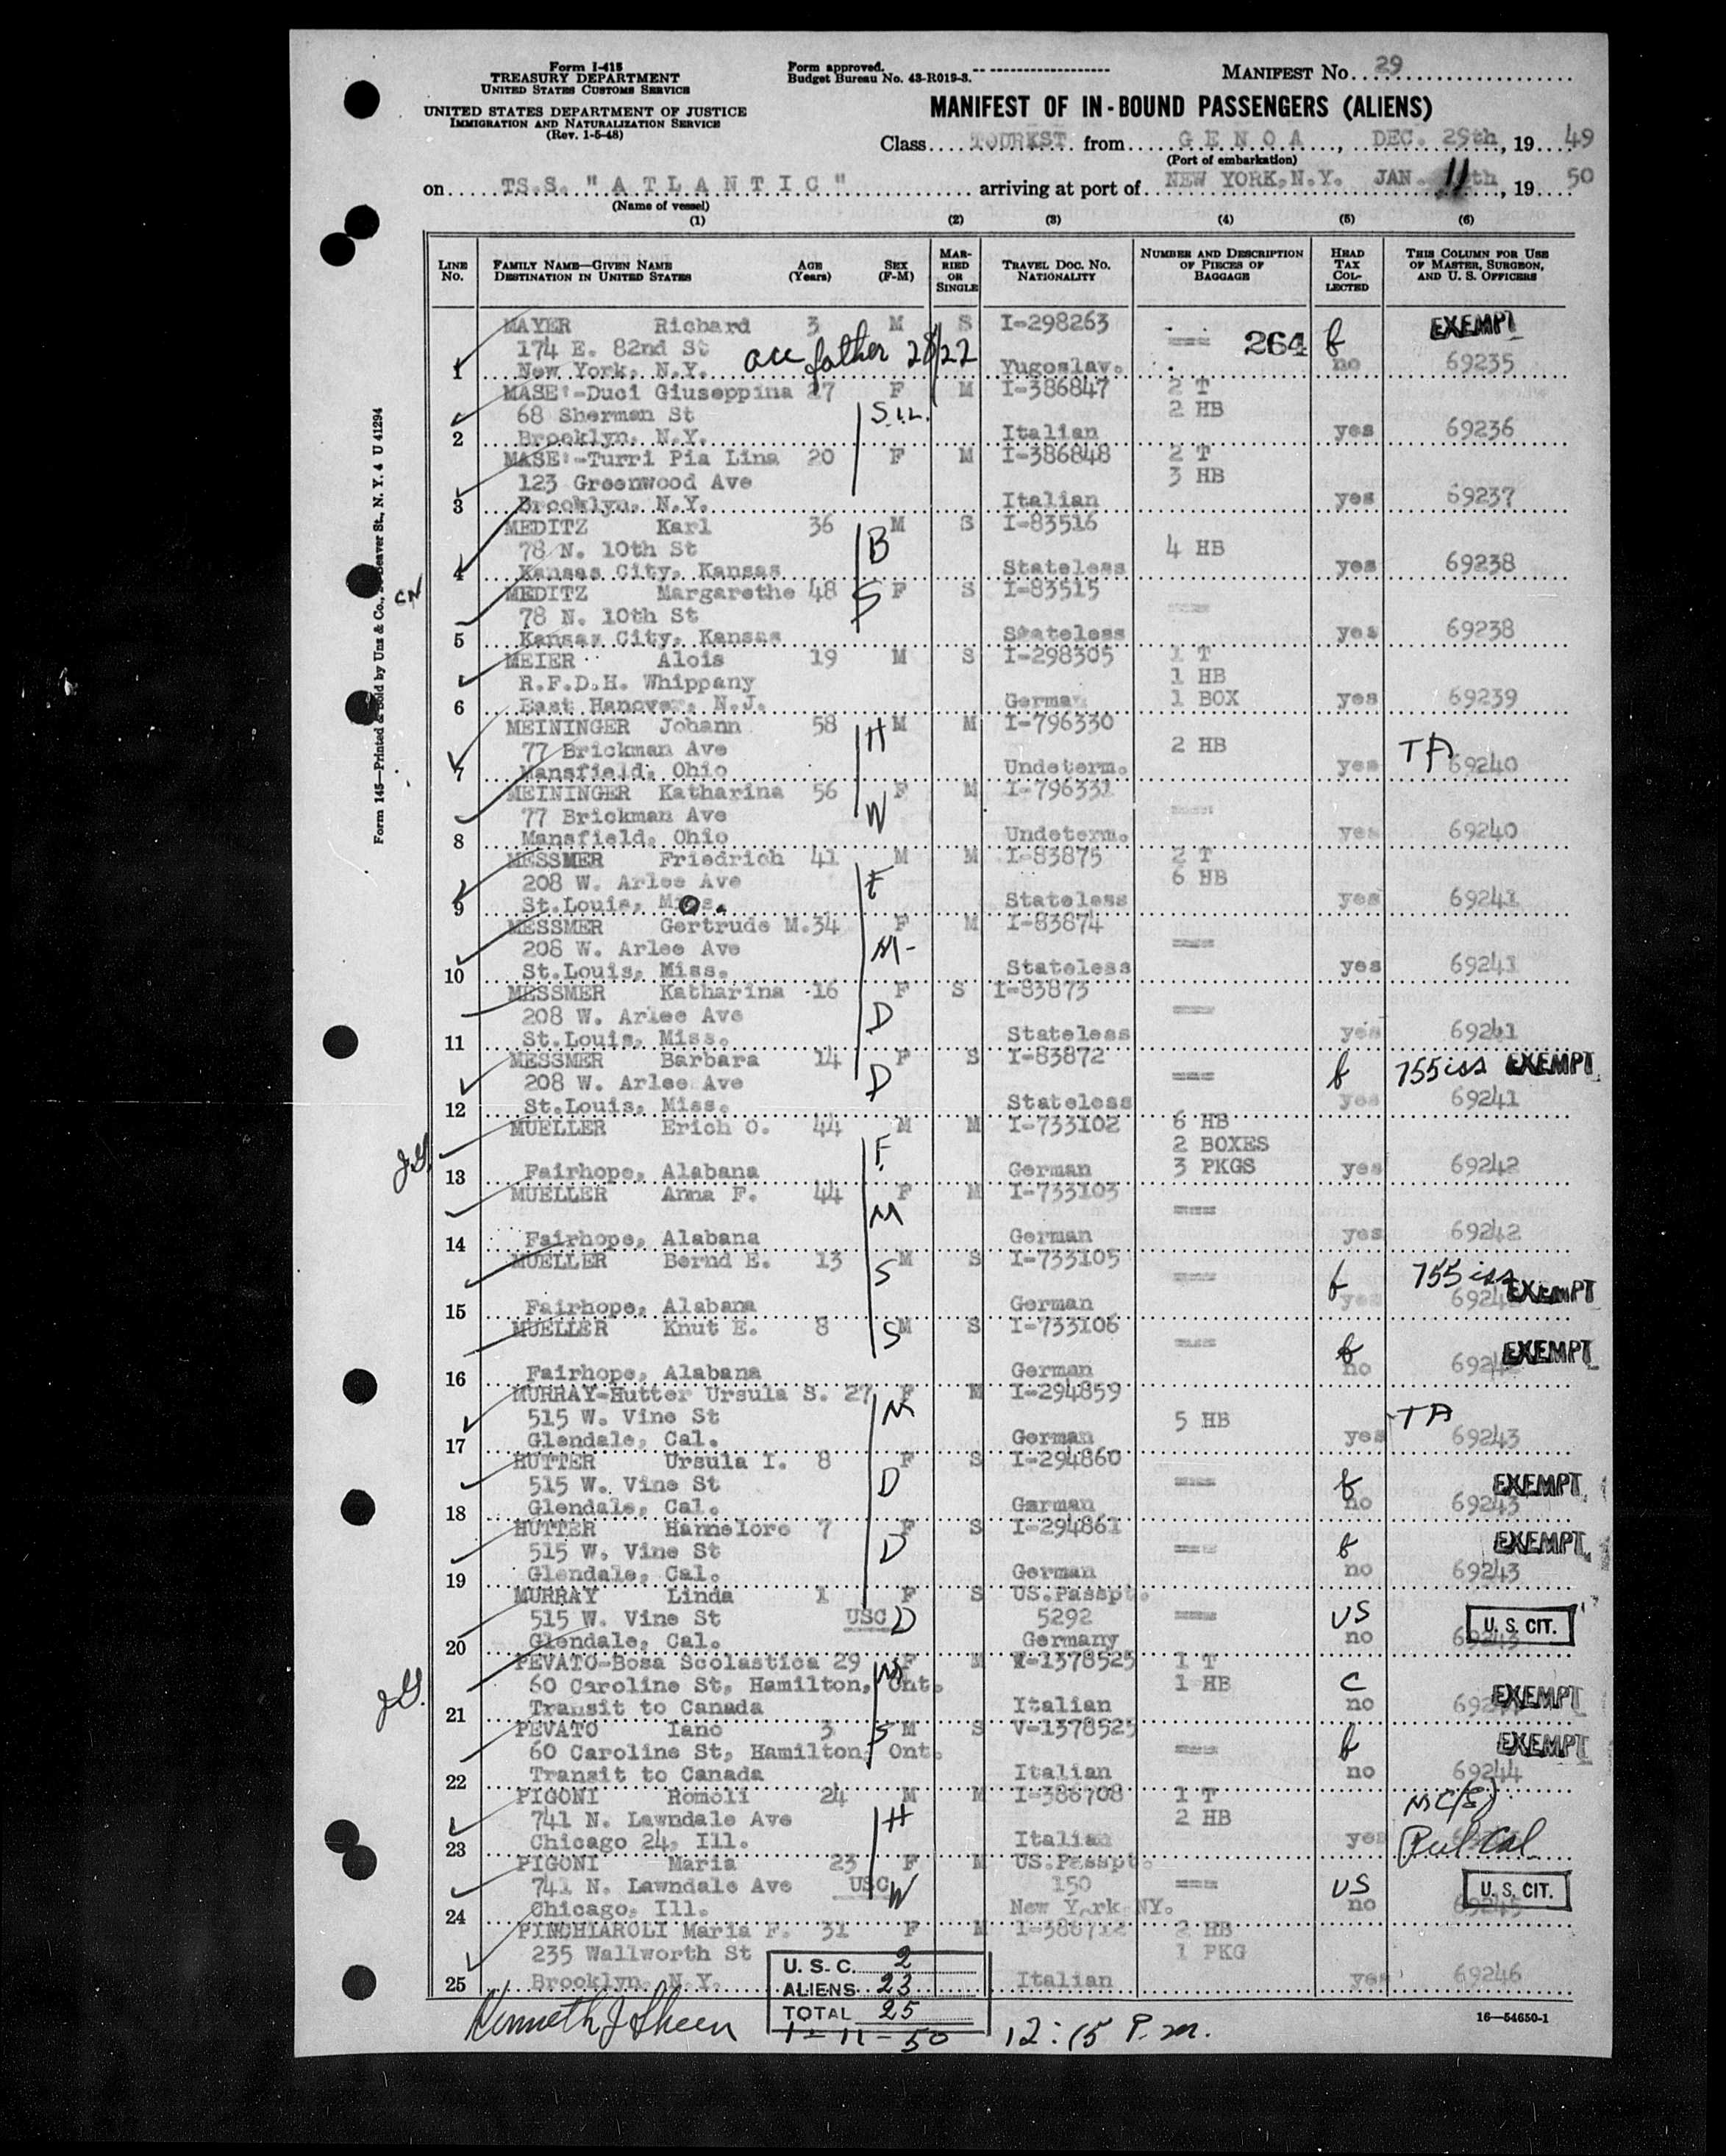 Form I-415
TREASURY DEPARTMENT
UNITED STATES CUSTOMS SERVICE
UNITED STATES DEPARTMENT OF JUSTICE
IMMIGRATION AND NATURALIZATION SERVICE
(Rev. 1-5-48)
Form approved.
Budget Bureau No. 43-R019-3.
MANIFEST NO. 29
MANIFEST OF IN-BOUND PASSENGERS (ALIENS)
Class TOURIST from GENOA, DEC. 29th, 19 49
(Port of embarkation)
on TS.S. "ATLANTIC" arriving at port of NEW YORK, N.Y. JAN. 11 th, 19 50
(Name of vessel)
(1) (2) (3) (4) (5) (6)
LINE NO. FAMILY NAME—GIVEN NAME DESTINATION IN UNITED STATES AGE (Years) SEX (F-M) MARRIED OR SINGLE TRAVEL DOC. NO. NATIONALITY NUMBER AND DESCRIPTION OF PIECES OF BAGGAGE HEAD TAX COLLECTED THIS COLUMN FOR USE OF MASTER, SURGEON, AND U. S. OFFICERS
MAYER Richard 3 M S I-298263 EXEMPT
174 E. 82nd St acc father 28/22 === 264 f
1 New York, N.Y. Yugoslav. no 69235
MASE'-Duci Giuseppina 27 F M I-386847 2 T
68 Sherman St S.I.L. 2 HB
2 Brooklyn, N.Y. Italian yes 69236
MASE'-Turri Pia Lina 20 F M I-386848 2 T
123 Greenwood Ave 3 HB
3 Brooklyn, N.Y. Italian yes 69237
MEDITZ Karl 36 M S I-83516
78 N. 10th St B 4 HB
4 Kansas City, Kansas Stateless yes 69238
MEDITZ Margarethe 48 S F S I-83515
78 N. 10th St ===
5 Kansas City, Kansas Stateless yes 69238
MEIER Alois 19 M S I-298305 1 T
R.F.D.H. Whippany 1 HB
6 East Hanover, N.J. German 1 BOX yes 69239
MEININGER Johann 58 H M M I-796330
77 Brickman Ave 2 HB TA
7 Mansfield, Ohio Undeterm. yes 69240
MEININGER Katharina 56 F M I-796331
77 Brickman Ave W ===
8 Mansfield, Ohio Undeterm. yes 69240
MESSMER Friedrich 41 M M I-83875 2 T
208 W. Arlee Ave F 6 HB
9 St.Louis, Mos. Stateless yes 69241
MESSMER Gertrude M. 34 F M I-83874
208 W. Arlee Ave M- ===
10 St.Louis, Miss. Stateless yes 69241
MESSMER Katharina 16 F S I-83873
208 W. Arlee Ave D ===
11 St.Louis, Miss. Stateless yes 69241
MESSMER Barbara 14 F S I-83872
208 W. Arlee Ave D === f 755 iss EXEMPT
12 St.Louis, Miss. Stateless yes 69241
MUELLER Erich O. 44 M M I-733102 6 HB
F 2 BOXES
13 Fairhope, Alabana German 3 PKGS yes 69242
MUELLER Anna F. 44 F M I-733103
M ===
14 Fairhope, Alabana German yes 69242
MUELLER Bernd E. 13 M S I-733105
S === f 755 iss EXEMPT
15 Fairhope, Alabana German yes
MUELLER Knut E. 8 S M S I-733106
=== f EXEMPT
16 Fairhope, Alabana German no
MURRAY-Hutter Ursula S. 27 F M I-294859
515 W. Vine St M 5 HB TA
17 Glendale, Cal. German yes 69243
HUTTER Ursula I. 8 F S I-294860
515 W. Vine St D === f EXEMPT
18 Glendale, Cal. German no 69243
HUTTER Hannelore 7 F S I-294861
515 W. Vine St D === f EXEMPT
19 Glendale, Cal. German no 69243
MURRAY Linda 1 F S US.Passpt.
515 W. Vine St USC D 5292 === US U. S. CIT.
20 Glendale, Cal. Germany no
PEVATO-Bosa Scolastica 29 M F M V-1378525 1 T
60 Caroline St, Hamilton, Ont. 1 HB C EXEMPT
21 Transit to Canada Italian no
PEVATO Iano 3 S M S V-1378525
60 Caroline St, Hamilton, Ont. === f EXEMPT
22 Transit to Canada Italian no 69244
PIGONI Romoli 24 M M I-386708 1 T
741 N. Lawndale Ave H 2 HB
23 Chicago 24, Ill. Italian yes
PIGONI Maria 23 F M US.Passpt.
741 N. Lawndale Ave USC W 150 === US U. S. CIT.
24 Chicago, Ill. New York NY. no 69245
PINCHIAROLI Maria F. 31 F M I-386712 2 HB
235 Wallworth St 1 PKG
25 Brooklyn, N.Y. Italian yes 69246
U. S. C. 2
ALIENS 23
TOTAL 25
Kenneth J Sheen 1-11-50 12:15 P.m.
16—54650-1